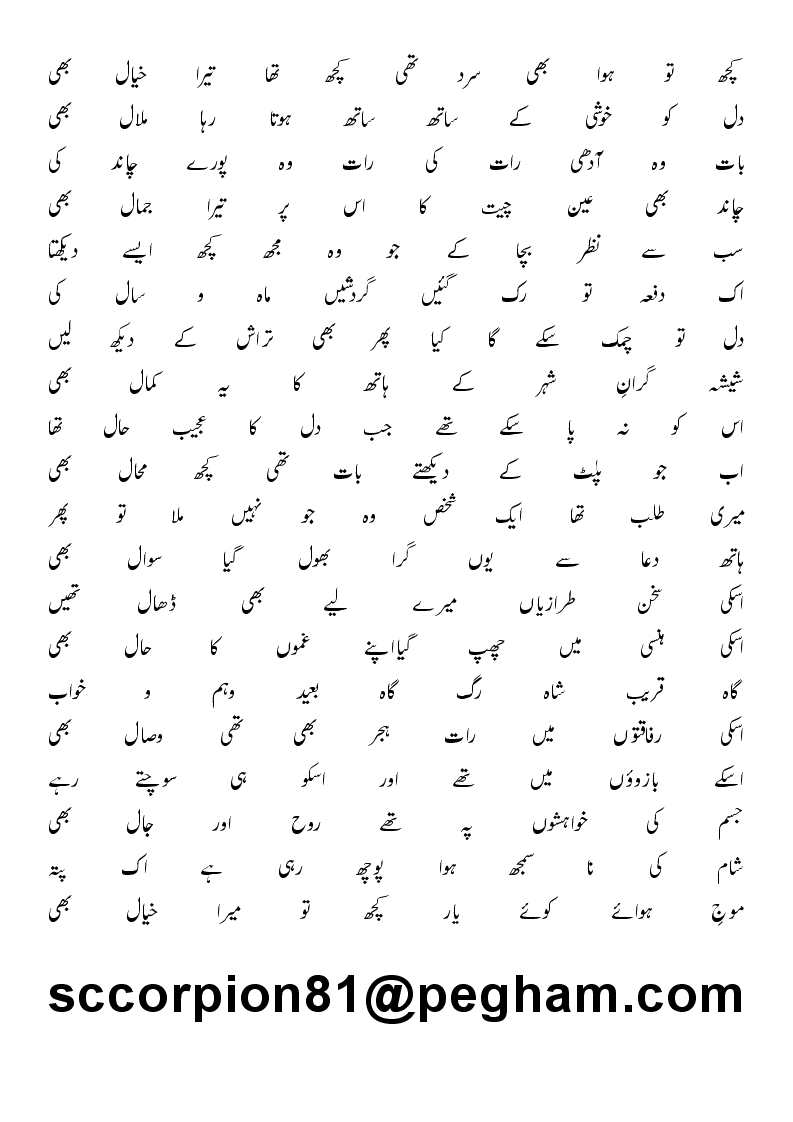 کچھ تو ہوا بھی سرد تھی کچھ تھا تیرا خیال بھی
دل کو خوشی کے ساتھ ساتھ ہوتا رہا ملال بھی
بات وہ آدھی رات کی رات وہ پورے چاند کی
چاند بھی عین چیت کا اس پر تیرا جمال بھی
سب سے نظر بچا کے جو وہ مجھ کچھ ایسے دیکھتا
اک دفعہ تو رک گئیں گردشیں ماہ و سال کی
دل تو چمک سکے گا کیا پھر بھی تراش کے دیکھ لیں
شیشہ گرانِ شہر کے ہاتھ کا یہ کمال بھی
اس کو نہ پا سکے تھے جب دل کا عجیب حال تھا
اب جو پلٹ کے دیکھتے بات تھی کچھ محال بھی
میری طلب تھا ایک شخص وہ جو نہیں ملا تو پھر
ہاتھ دعا سے یوں گرا بھول گیا سوال بھی
اسکی سخن طرازیاں میرے لیے بھی ڈھال تھیں
اسکی ہنسی میں چھپ گیا اپنے غموں کا حال بھی
گاہ قریب شاہ رگ گاہ بعید وہم و خواب
اسکی رفاقتوں میں رات ہجر بھی تھی وصال بھی
اسکے بازوؤں میں تھے اور اسکو ہی سوچتے رہے
جسم کی خواہشوں پہ تھے روح اور جال بھی
شام کی نا سمجھ ہوا پوچھ رہی ہے اک پتہ
موجِ ہوائے کوئے یار کچھ تو میرا خیال بھی
sccorpion81@pegham.com